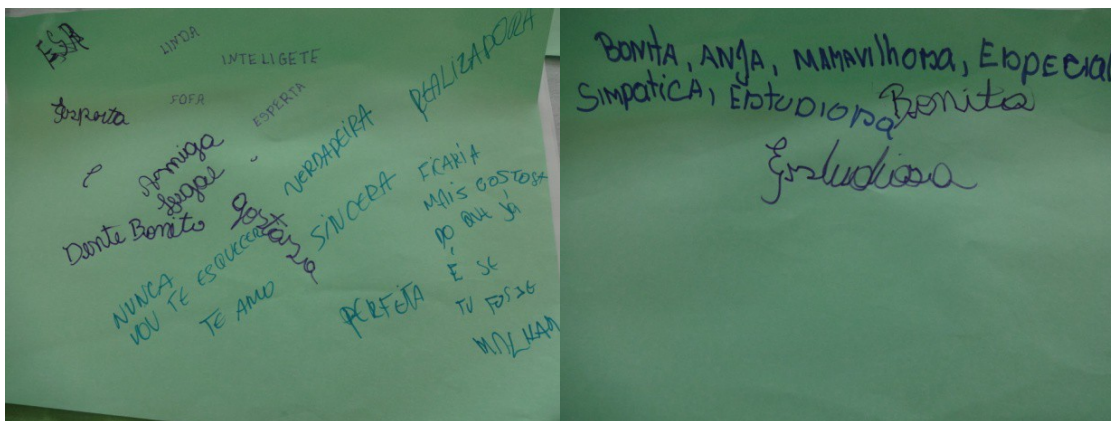 LINDA
INTELIGETE
FOFA
ESPERTA
REALIZADORA
Esperta
Amiga
Legal
Dente Bonito
gostosa
VERDADEIRA
SINCERA
NUNCA
VOU TE ESQUECER
TE AMO
PERFEITA
FICARIA
MAIS GOSTOSA
DO QUE JÁ
É SE
TU FOSSE
BONITA, ANJA, MARAVILHOSA, ESPECIAL
SIMPATICA, ESTUDIOSA Bonita
Estudiosa